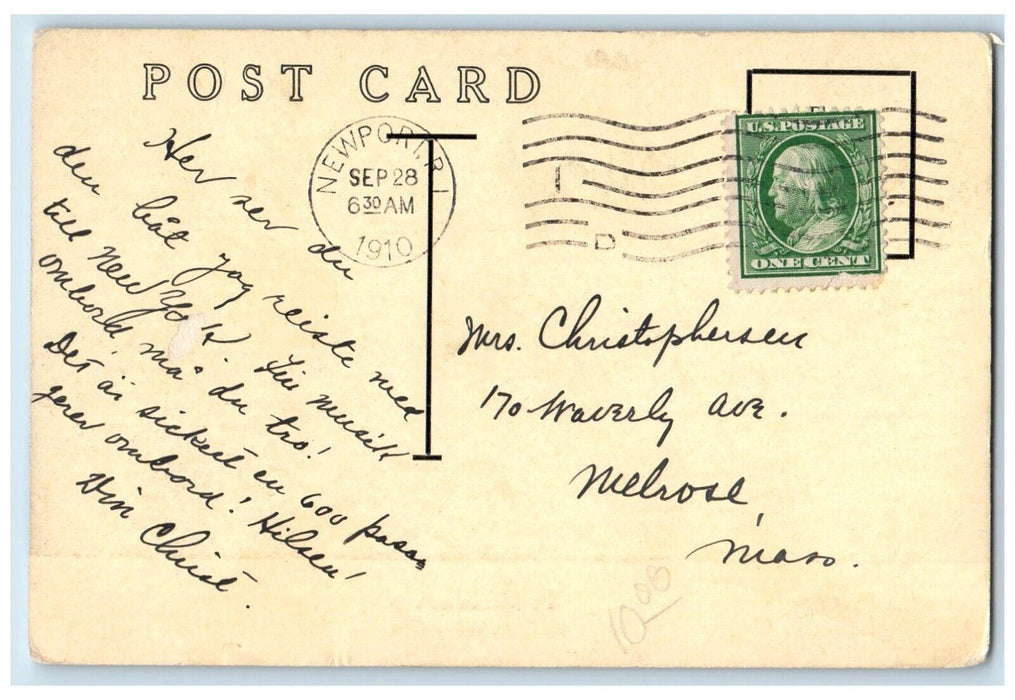 POST CARD
NEWPORT, R.I.
SEP 28
6 30 AM
1910
D
U.S. POSTAGE
ONE CENT
Her ser du
den båt jag reiste med
till New York. Fin musikk
ombord må du tro!
Det är sickert en 600 passa
gerer ombord! Hilsen!
Din Christ.
Mrs. Christophersen
170 Waverly Ave.
Melrose,
Mass.
10.00